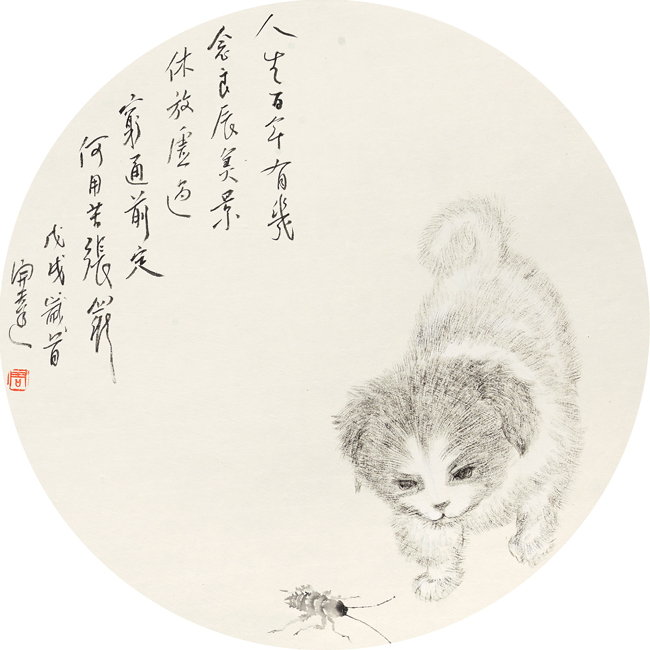 人生百年有幾
念良辰美景
休放虛過
窮通前定
何用苦張羅
戊戌歲首